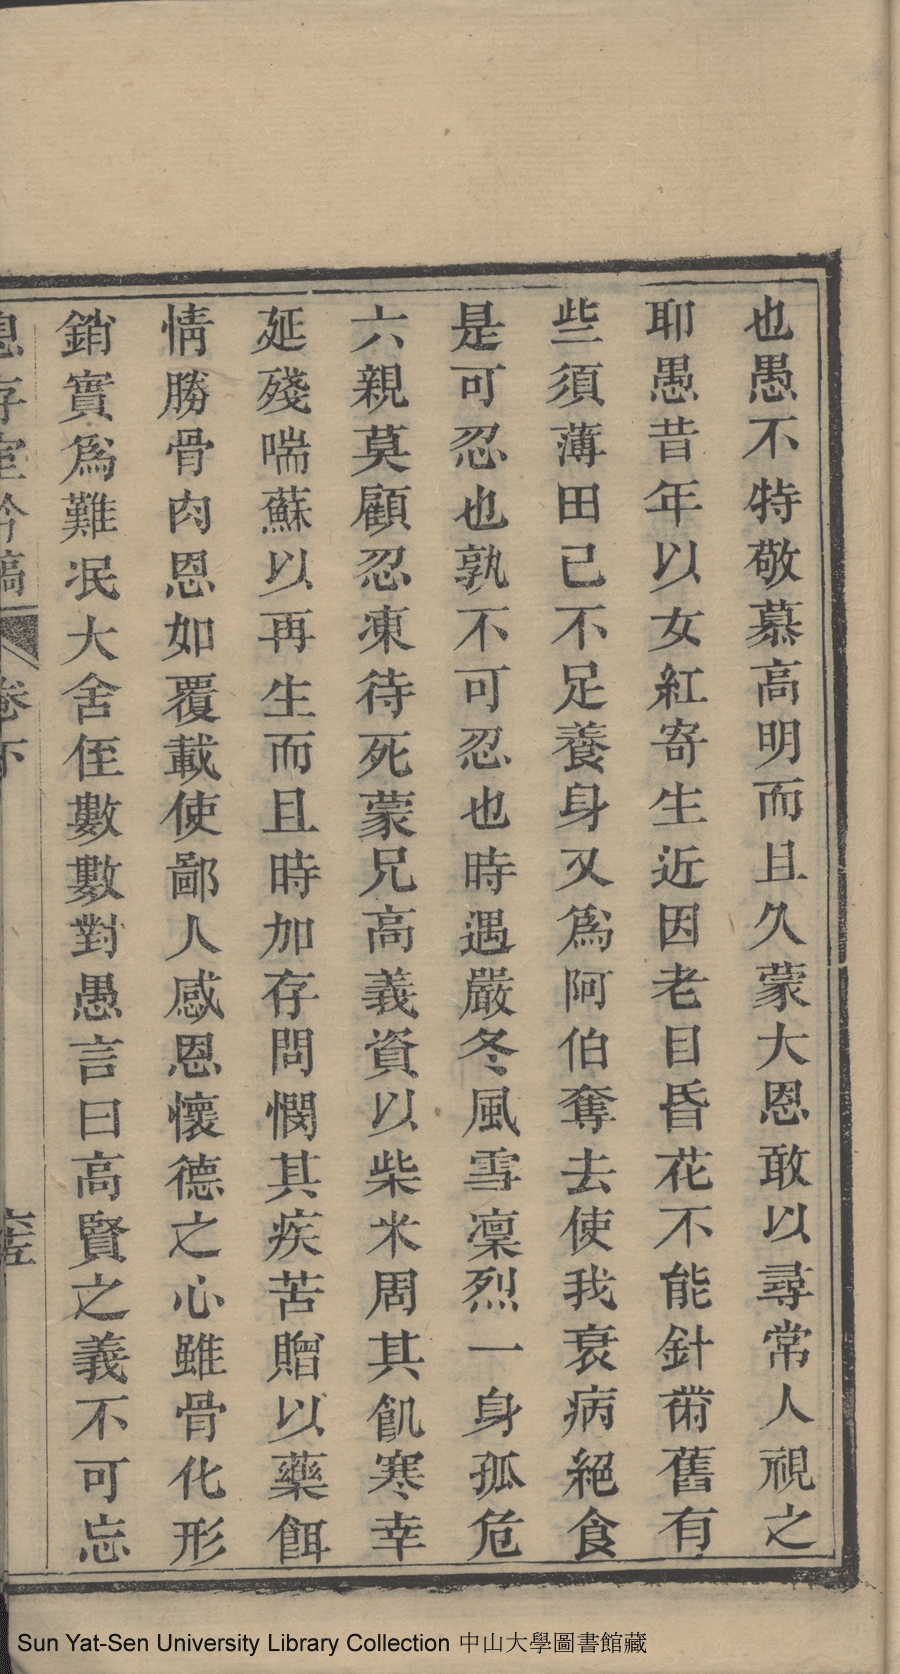 也愚不特敬慕高明而且久蒙大恩敢以尋常人視之
耶愚昔年以女紅寄生近因老目昏花不能針黹舊有
些須薄田已不足養身又爲阿伯奪去使我衰病絕食
是可忍也孰不可忍也時遇嚴冬風雪凜烈一身孤危
六親莫顧忍凍待死蒙兄高義資以柴米周其飢寒幸
延殘喘蘇以再生而且時加存問憫其疾苦贈以藥餌
情勝骨肉恩如覆載使鄙人感恩懷德之心雖骨化形
銷實爲難泯大舍侄數數對愚言曰高賢之義不可忘
息存室吟稿 卷下
Sun Yat-Sen University Library Collection 中山大學圖書館藏